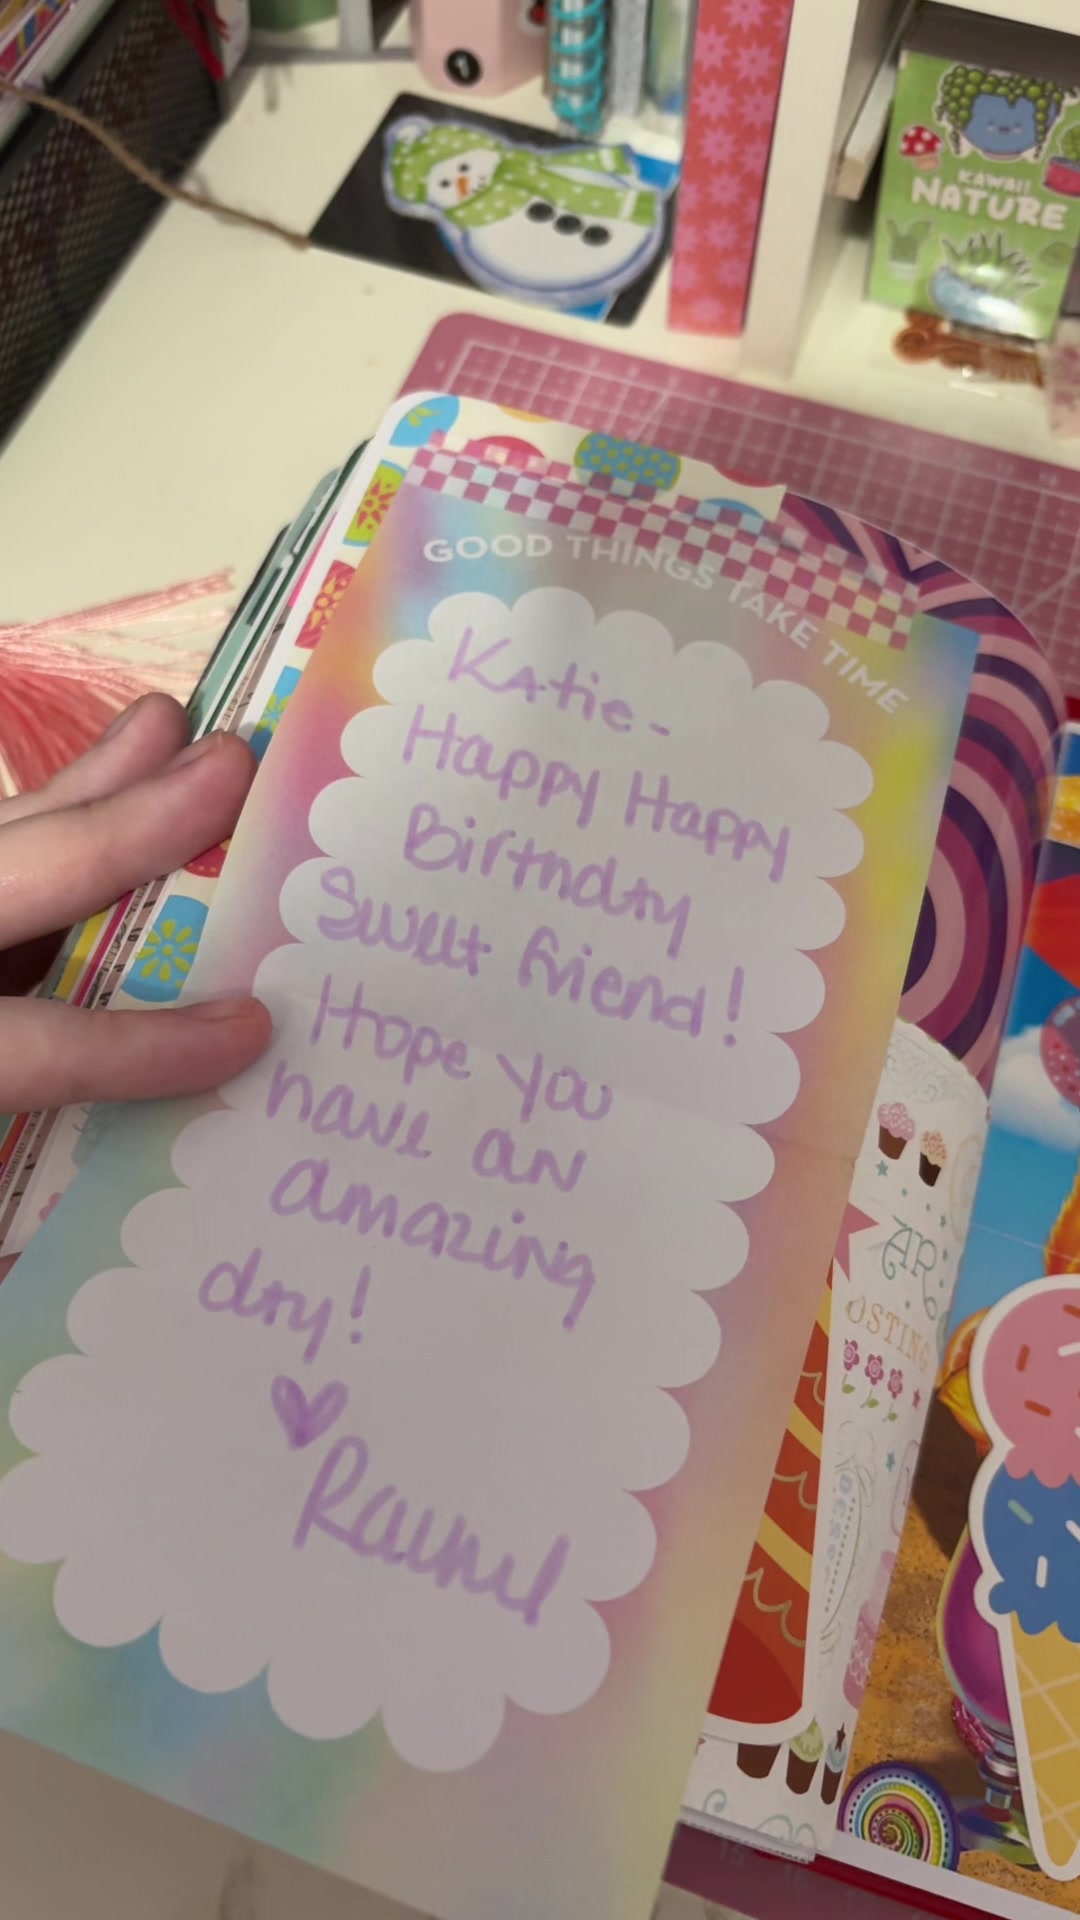 KAWAII
NATURE
GOOD THINGS TAKE TIME
Katie-
Happy Happy
Birthday
Sweet friend!
Hope you
have an
amazing
day!
Rachel
AR
OSTING